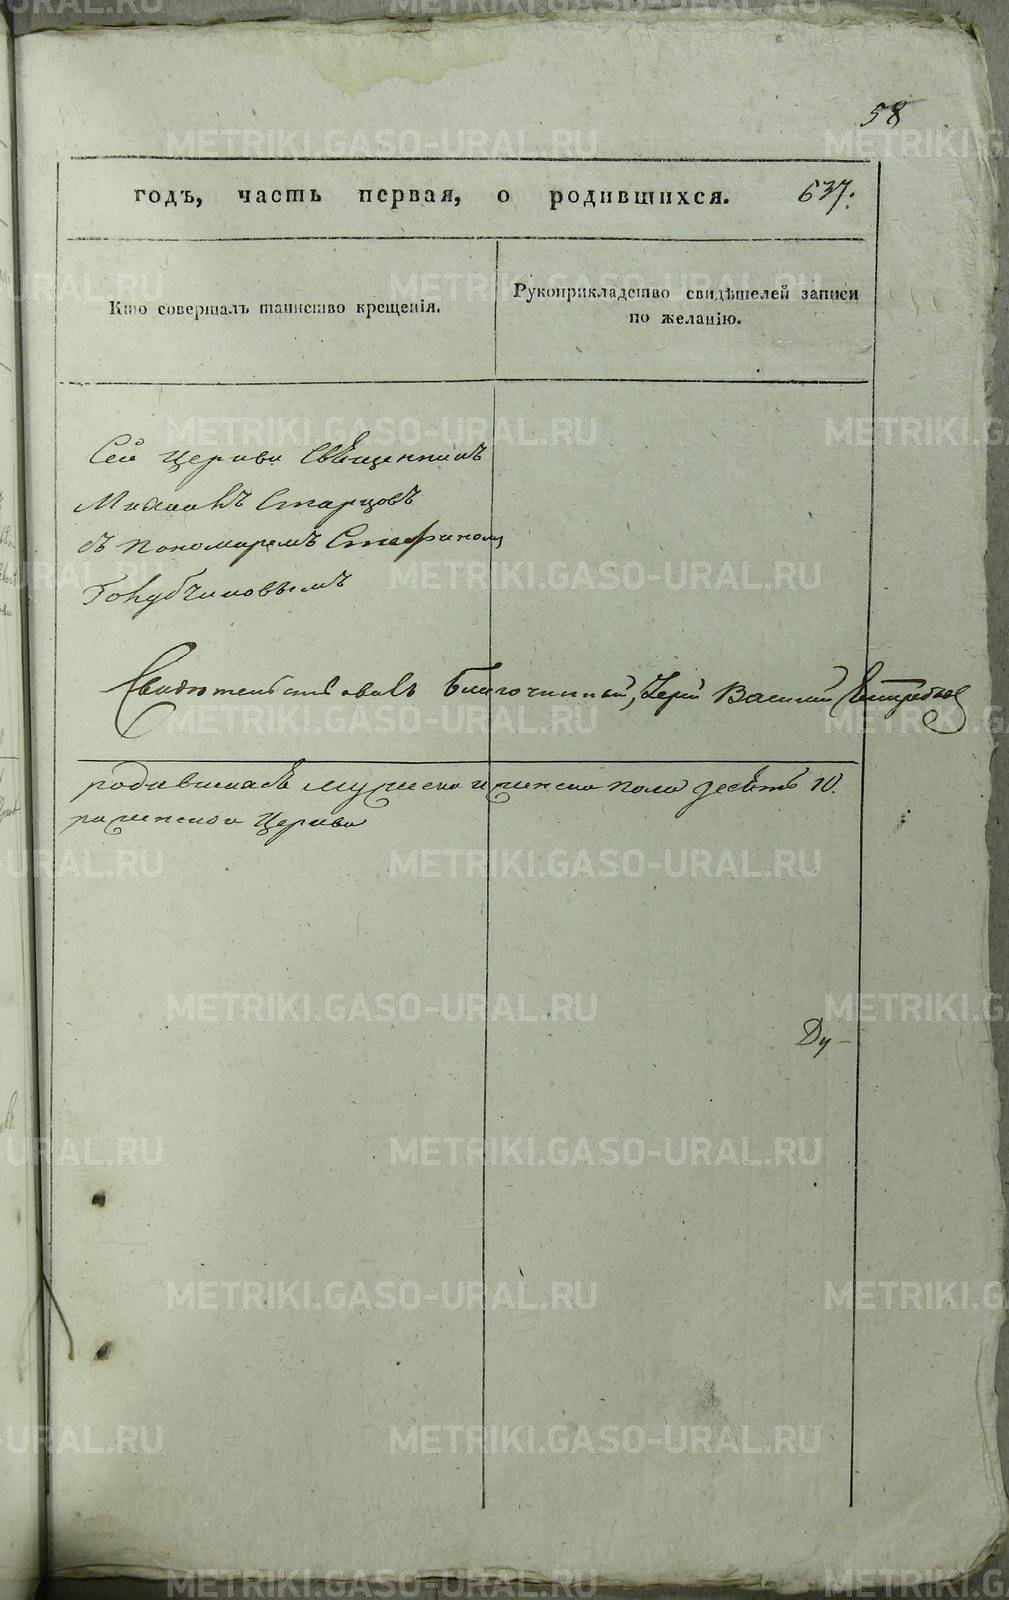 58
годъ, часть первая, о родившихся. 637.
Кто совершалъ таинство крещенія.
Рукоприкладство свидѣтелей записи
по желанію.
Сей Церкви Священникъ
Михаилъ Старцовъ
съ пономаремъ Стефаномъ
Голубчиковымъ
Свидѣтельствовалъ Благочинный, Іерей Василий
родившихся мужеска и женска пола десять 10.
Церкви
Ду-
METRIKI.GASO-URAL.RU